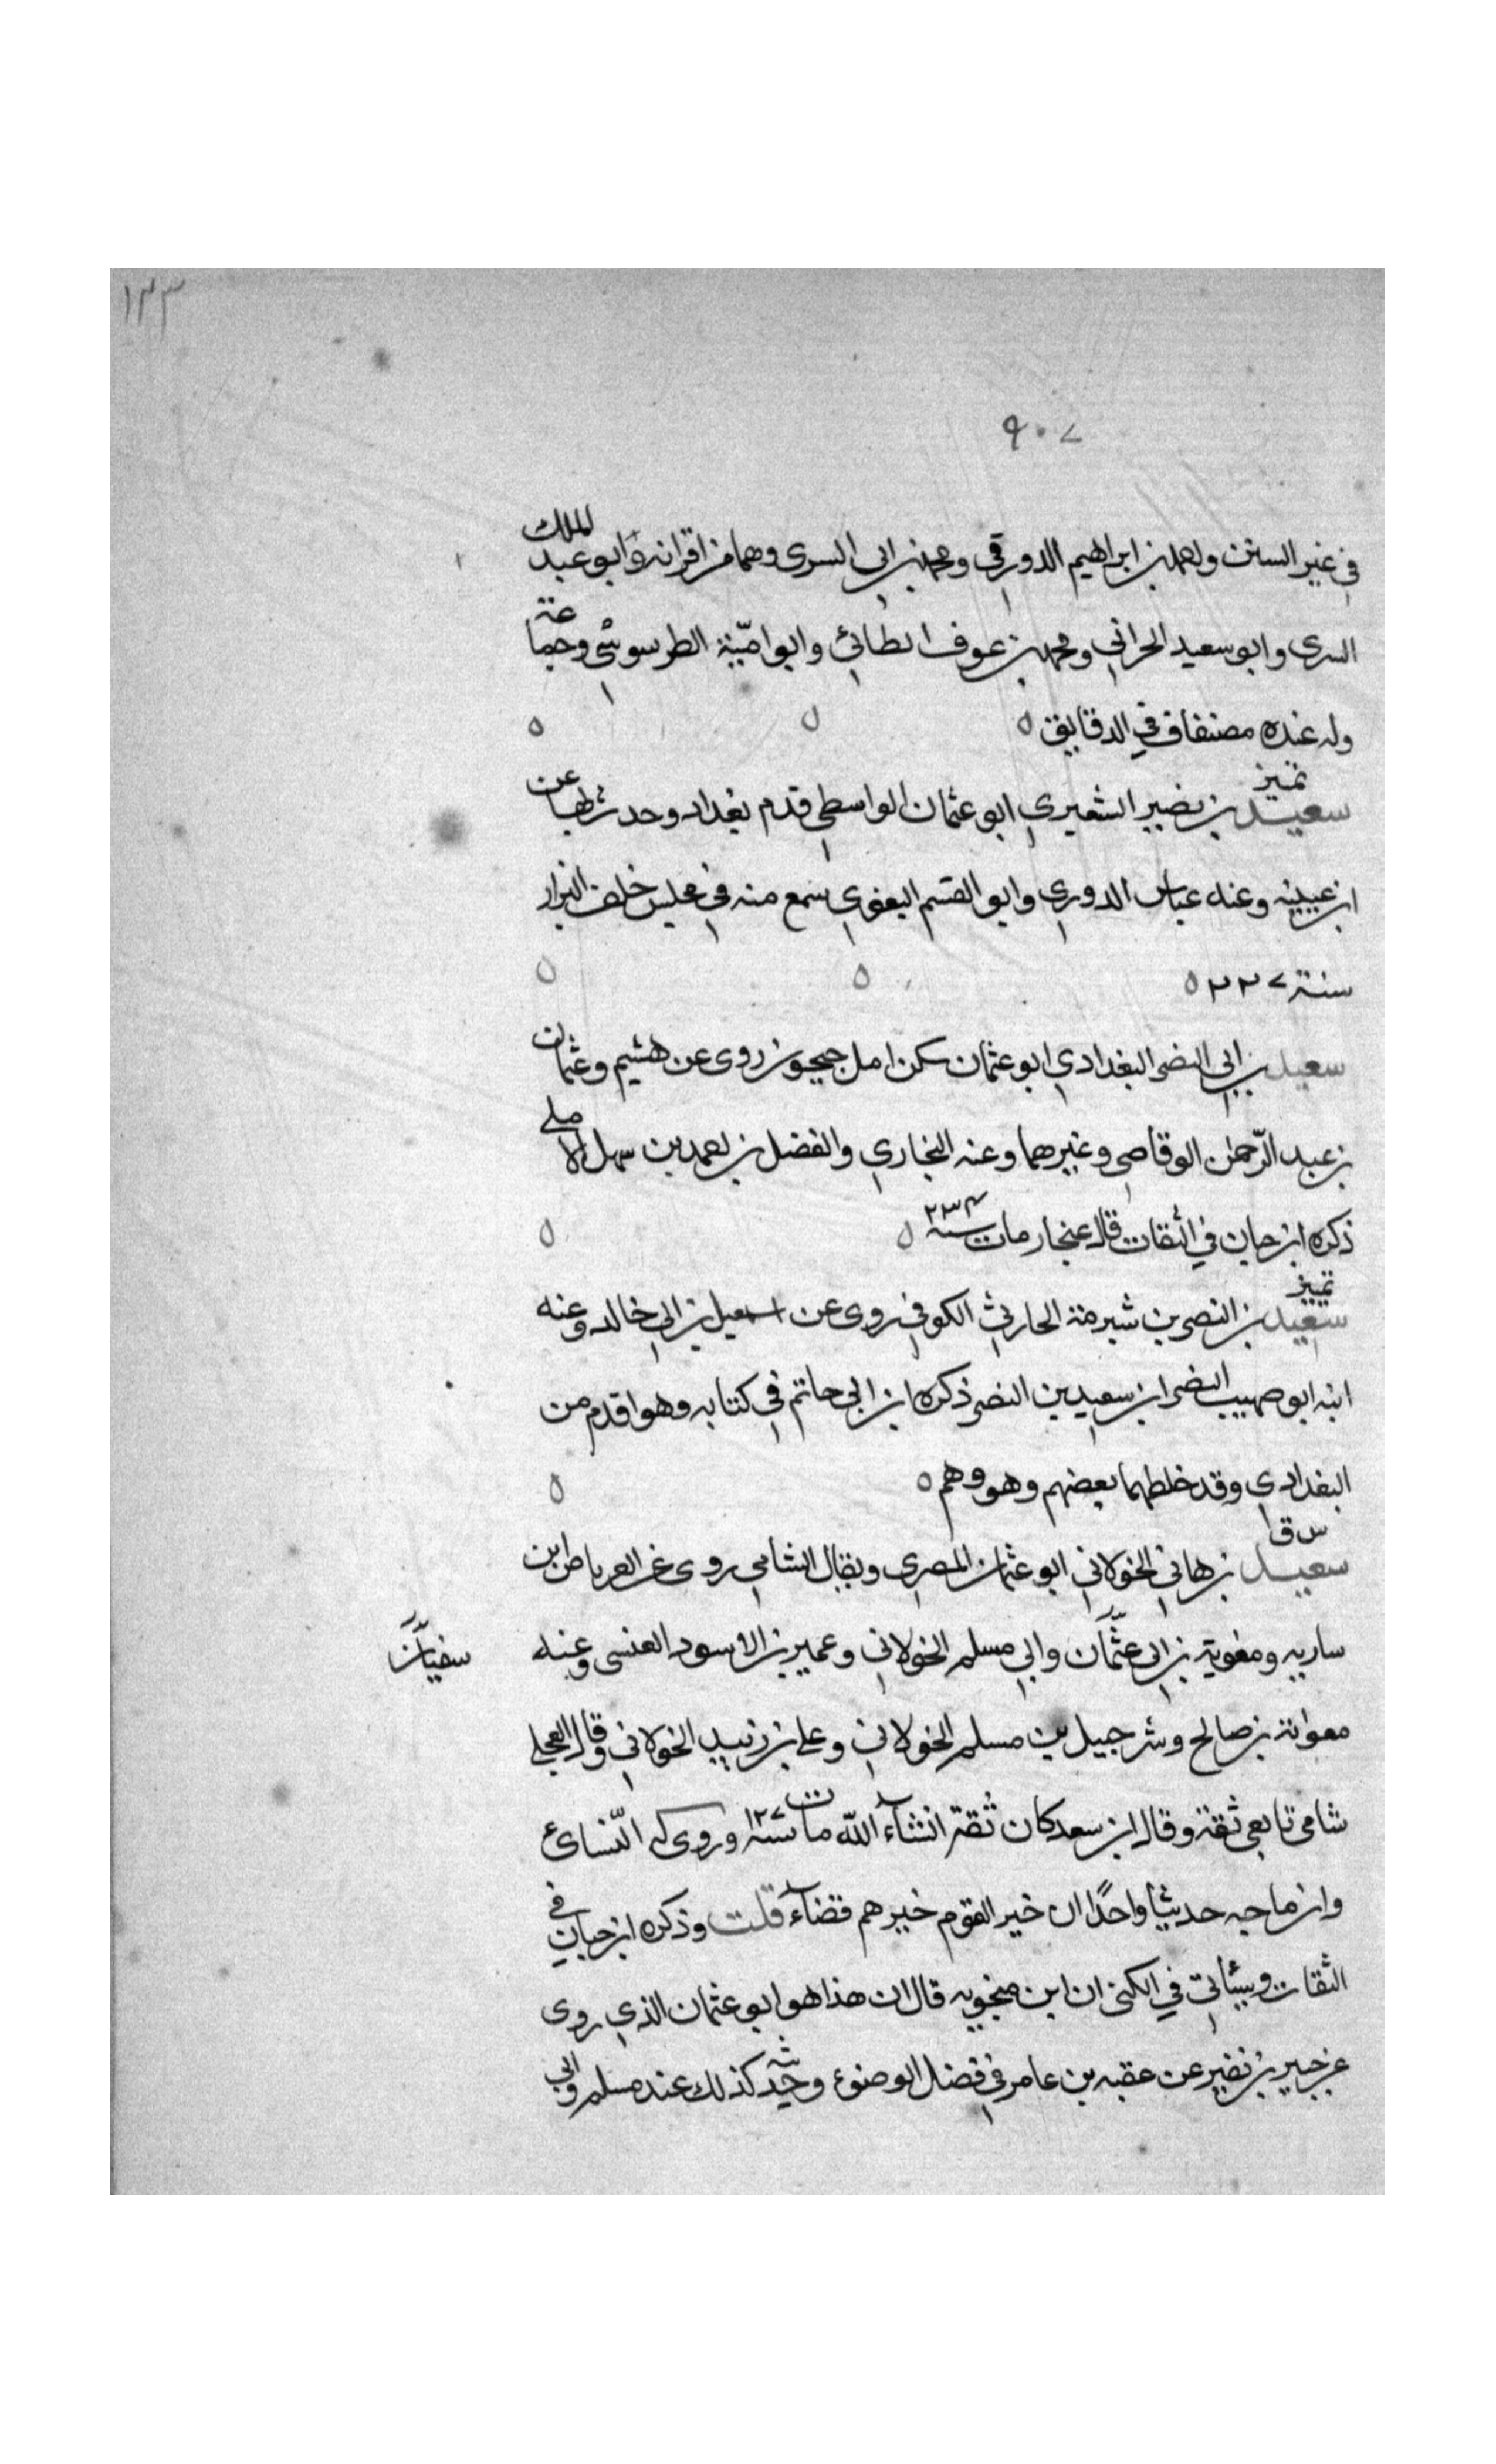 ١٣٣
٩٠٧
في غير السنن واحمد بن ابراهيم الدورقي ومحمد بن ابي السرى وهما من اقرانه وابو عبد الملك
السرى وابو سعيد الحراني ومحمد بن عوف الطائي وابو اميّة الطرسوسي وجماعة
وله عنده مصنفات في الدقايق
تميز
سعيد بن نصير الشعيري ابو عثمان الواسطي قدم بغداد وحدث بها عن
ابن عيينه وعنه عباس الدوري وابو القسم البغوي سمع منه في مجلس خلف البزار
سنة ٢٢٧
سعيد بن ابي النضر البغدادي ابو عثمان سكن امل جيحون روى عن هشيم وعثمان
بن عبد الرّحمن الوقاصي وغيرهما وعنه البخاري والفضل بن احمد بن سهل الاملي
ذكره ابن حبان في الثقات قال عنجار مات سنة ٢٣٤
تميز
سعيد بن النصر بن شبرمة الحارثي الكوفي روى عن اسمعيل بن ابي خالد وعنه
ابنه ابو صهيب النضر ابن سعيد بن النضر ذكره ابن ابي حاتم في كتابه وهو اقدم من
البغدادي وقد خلطهما بعضهم وهو وهم
س ق
سعيد بن هاني الخولاني ابو عثمان المصري ويقال الشامي روى عن العرباض بن
ساريه ومغوية بن ابي عثمان وابي مسلم الخولاني وعمير بن الاسود العنسي وعنه
سفيان
معوانة بن صالح وشرحبيل بن مسلم الخولاني وعلي بن زبيد الخولاني وقال العجلي
شامي تابعي ثقة وقال ابن سعد كان ثقة انشآء اللّه مات سنة ١٢٧ وروى له النّسائي
وابن ماجه حديثا واحدًا ان خير القوم خيرهم قضآء قلت وذكره ابن حبان في
الثقات وسيأتي في الكنى ان ابن منجويه قال ان هذا هو ابو عثمان الذي روى
عن جبير بن نفير عن عقبه بن عامر في فضل الوضوء وحديثه كذلك عند مسلم وابي